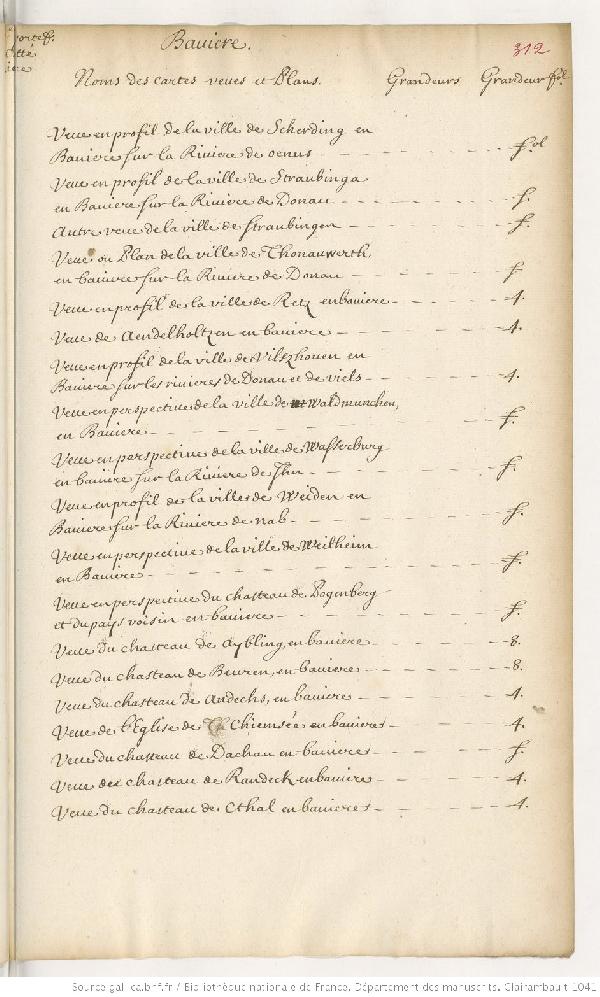 Baviere.
312
Noms des cartes veues et Plans. Grandeurs Grandeur fol.
Veue en profil de la ville de Scherding en
Baviere sur la Riviere de oenus fol
Veue en profil de la ville de Straubinga
en Baviere sur la Riviere de Donau f.
Autre veue de la ville de Straubingen f.
Veue ou Plan de la ville de Thonauwerth,
en baviere sur la Riviere de Donau f
Veue en profil de la ville de Retz en baviere 4.
Veue de Aendelholtzen en baviere 4.
Veue en profil de la ville de Vilszhouen en
Baviere sur les rivieres de Donau et de viels 4.
Veue en perspective de la ville de Waldmunchen,
en Baviere f.
Veue en perspective de la ville de Wasserburg
en baviere sur la Riviere de Jhn f.
Veue en profil de la ville de Weiden en
Baviere sur la Riviere de nab f.
Veue en perspective de la ville de Weilheim
en Baviere f.
Veue en perspective du chasteau de Bogenberg
et du pays voisin en baviere f.
Veue du chasteau de Aybling en baviere 8.
Veue du chasteau de Beuren, en baviere 8.
Veue du chasteau de Andechs, en baviere 4.
Veue de l'Eglise de Chiemsée en baviere 4.
Veue du chasteau de Dachau en baviere f.
Veue du chasteau de Randeck en baviere 4.
Veue du chasteau de Ethal en baviere 4.
Source gallica.bnf.fr / Bibliothèque nationale de France. Département des manuscrits. Clairambault 1041